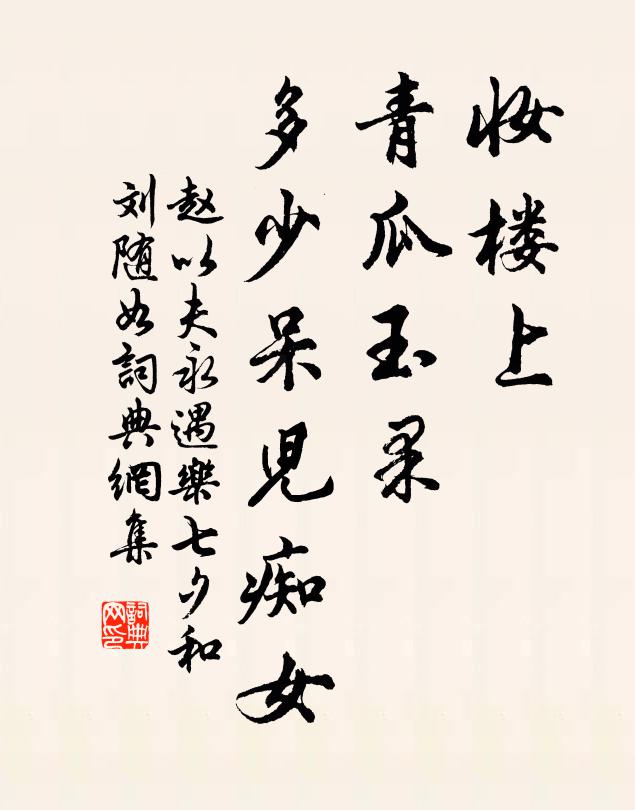 妆楼上
青瓜玉果
多少呆児痴女
赵以夫永遇樂七夕和
刘随如詞典網集
詞典网印